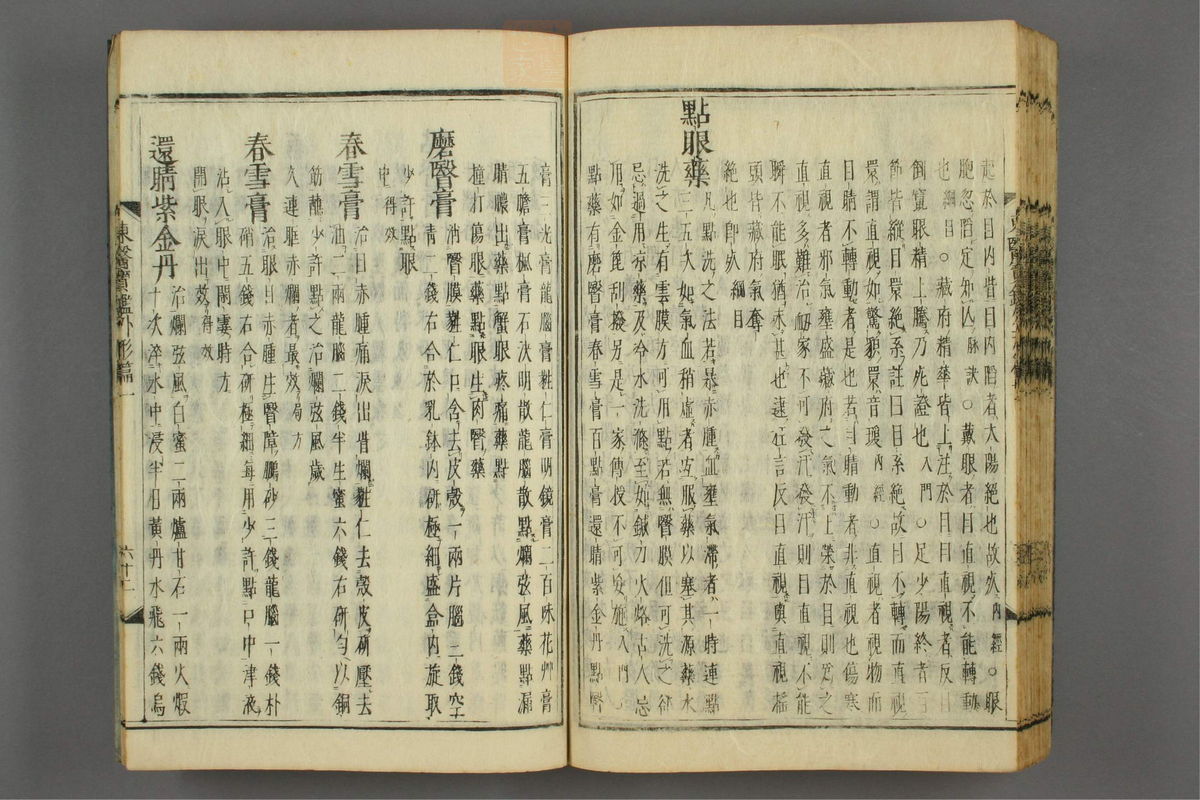 起於目內眥目內陷者太陽絶也故必 內經○眼
胞忽陷定知亾 脉訣○戴眼者目直視不能轉動
也 綱目○藏府精華皆上注於目目直視者反目
倒竄眼精上騰乃死證也 入門○足少陽終者百
節皆縱目瞏絶系註曰目系絶故目不轉而直視
瞏謂直視如驚貌瞏音瓊 內經○直視者視物而
目睛不轉動者是也若目睛動者非直視也傷寒
直視者邪氣壅盛藏府之氣不上榮於目則爲之
直視多難治衂家不可發汗發汗則目直視不能
瞬不能眠猶未甚也逮
頭皆藏府氣奪
絶也即必 綱目
點眼藥
凡點洗之法若暴赤腫血壅氣滯者一時連點
三五次如氣血稍虛者宜服藥以塞其源藥水
洗之生有雲膜方可用點若無瞖膜但可洗之
忌過用凉藥及冷水洗滌至如鍼刀火烙古人忌
用如金篦刮撥另是一家傳授不可妄施 入門
點藥有磨瞖膏春雪膏百點膏還睛紫金丹點瞖
膏三光膏龍腦膏蕤仁膏明鏡膏二百味花艸膏
五膽膏楓膏石決明散龍腦散點爛弦風藥點漏
睛膿出藥點蟹眼疼痛藥點
撞打傷眼藥點眼生肉瞖藥
磨瞖膏
治瞖膜蕤仁口含去皮殼一兩片腦三錢空
青二錢右合於乳鉢內硏極細盛盒內旋取
少許點眼
中 得效
春雪膏
治目赤腫痛淚出眥爛蕤仁去殼皮硏壓去
油二兩龍腦二錢半生蜜六錢右硏勻以銅
筯蘸少許點之治爛弦風歲
久連眶赤爛者最效 局方
春雪膏
治眼目赤腫生瞖障鵬砂三錢龍腦一錢朴
硝五錢右合硏極細每用少許點口中津液
沾入眼中閉霎時方
開眼淚出效 得效
還睛紫金丹
治爛弦風白蜜二兩爐甘石一兩火煆
十次淬水中浸半日黃丹水飛六錢烏
東醫寶鑑外形篇一
六十二